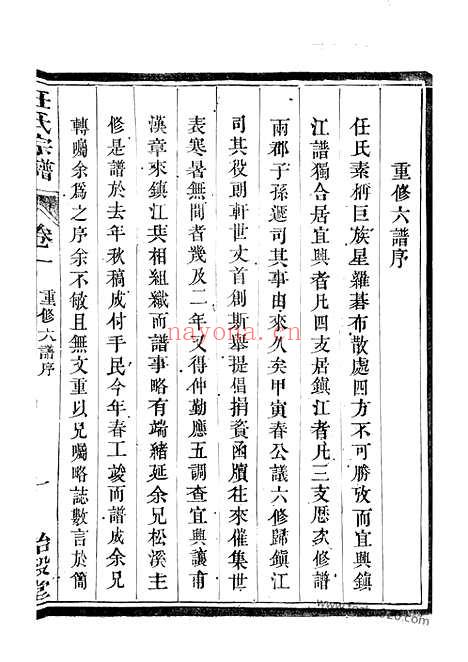 重修六譜序
任氏素稱巨族星羅碁布散處四方不可勝攷而宜興鎮
江譜獨合居宜興者凡四支居鎮江者凡三支歷次修譜
兩郡子孫遞司其事由來久矣甲寅春公議六修歸鎮江
司其役朗軒世丈首創斯舉提倡捐資函牘往來催集世
表寒暑無間者幾及二年又得仲勤應五調查宜興讓甫
漢章來鎮江共相組織而譜事略有端緒延余兄松溪主
修是譜於去年秋稿成付手民今年春工竣而譜成余兄
轉囑余為之序余不敏且無文重以兄囑略誌數言於簡
任氏宗譜
卷一
重修六譜序
一
貽穀堂
nayona.cn